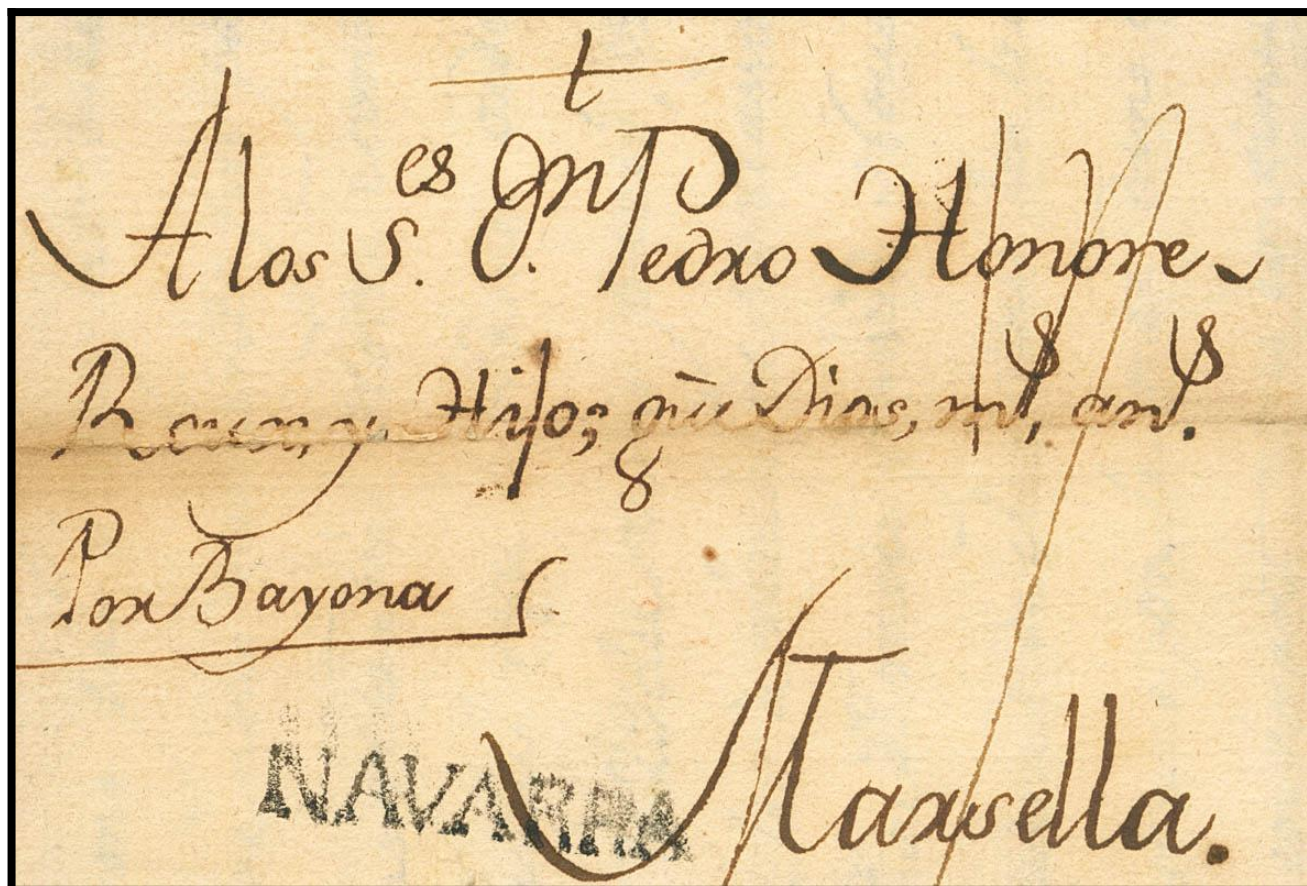 †
A los S.es Jn Pedro Honore
Roux, y Hijo; gue Dios, ms, ans.
Por Bayona
NAVARRA
Marsella.